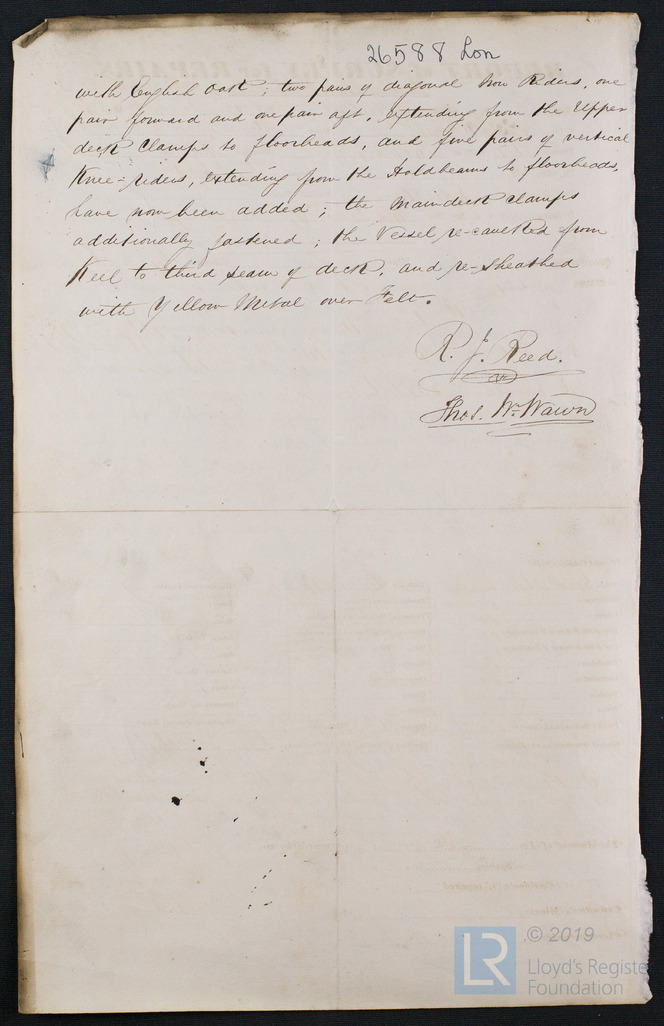 26588 Lon
with English Oak; two pairs of diagonal Iron Riders, one
pair forward and one pair aft, extending from the Upper
deck Clamps to floorheads, and five pairs of vertical
Knee-riders, extending from the Holdbeams to floorheads,
have now been added; the Maindeck Clamps
additionally fastened; the Vessel re-caulked from
Keel to third seam of deck, and re-sheathed
with Yellow Metal over Felt.
R. J. Reed.
Thos. Wm. Wawn
LR © 2019
Lloyd's Registe
Foundation